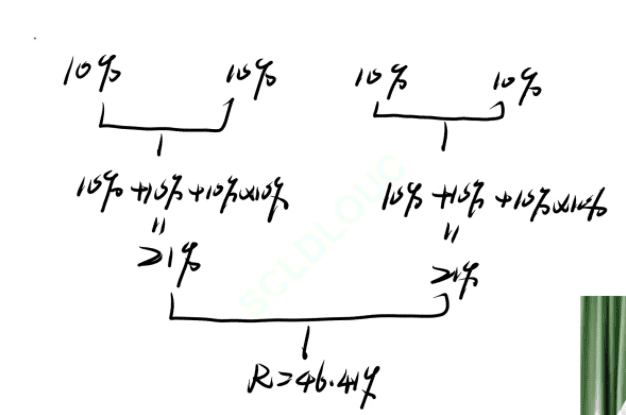 10% 10% 10% 10%
10%+10%+10%×10% 10%+10%+10%×10%
= =
21% 21%
R=46.41%
SCLDLOUC